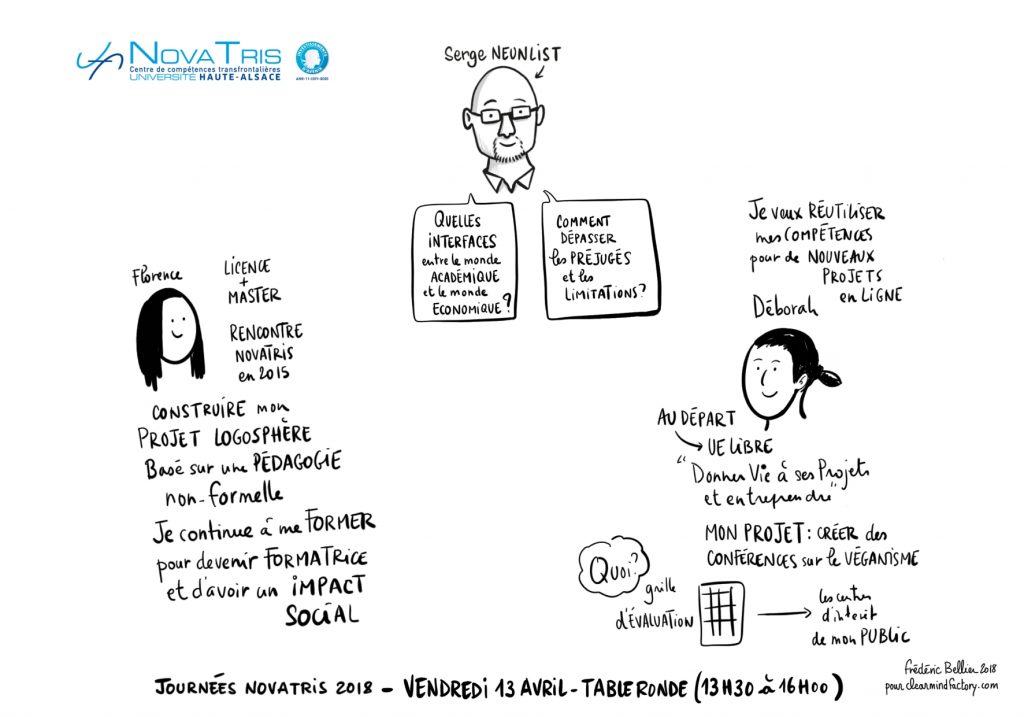 NOVATRIS
Centre de compétences transfrontalières
UNIVERSITÉ HAUTE-ALSACE
INVESTISSEMENTS
D'AVENIR
Serge NEUNLIST
QUELLES
INTERFACES
entre le monde
ACADÉMIQUE
et le monde
ECONOMIQUE?
COMMENT
DÉPASSER
les PRÉJUGÉS
et les
LIMITATIONS?
Florence
LICENCE
+
MASTER
RENCONTRE
NOVATRIS
en 2015
CONSTRUIRE mon
PROJET LOGOSPHÈRE
Basé sur une PÉDAGOGIE
non-formelle
Je continue à me FORMER
pour devenir FORMATRICE
et d'avoir un IMPACT
SOCIAL
Je veux RÉUTILISER
mes COMPÉTENCES
pour de NOUVEAUX
PROJETS
en LIGNE
Déborah
AU DÉPART
UE LIBRE
"Donner Vie à ses Projets
et entreprendre"
MON PROJET : CRÉER des
CONFÉRENCES sur le VÉGANISME
QUOI?
grille
d'ÉVALUATION
les centres
d'interêt
de mon PUBLIC
Frédéric Bellier 2018
pour clearmindfactory.com
JOURNÉES NOVATRIS 2018 - VENDREDI 13 AVRIL - TABLE RONDE (13H30 à 16H00)